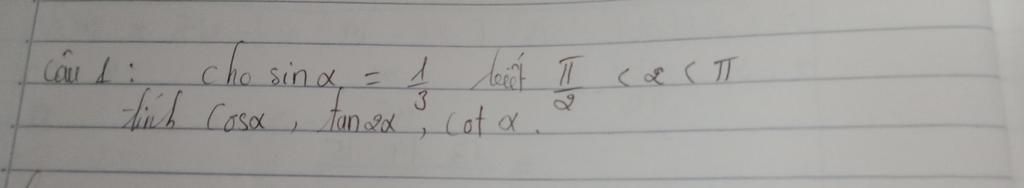 Câu 1: Cho sin α = 1/3 biết π/2 < α < π
tính Cosα, tan2α, Cot α.